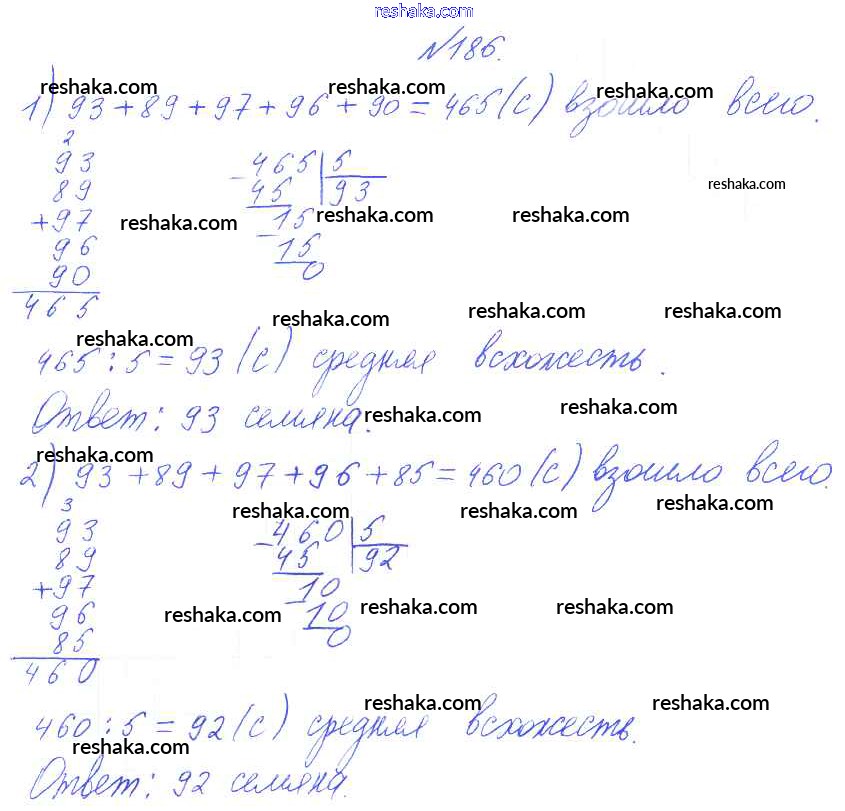 reshaka.com
№186.
reshaka.com reshaka.com reshaka.com
1) 93 + 89 + 97 + 96 + 90 = 465 (с) взошло всего.
2
93
89
+97
96
90
465
- 465 | 5
45 | 93
- 15
15
0
reshaka.com
reshaka.com reshaka.com reshaka.com
reshaka.com reshaka.com reshaka.com
reshaka.com
465 : 5 = 93 (с) средняя всхожесть.
Ответ: 93 семяна.
reshaka.com reshaka.com
reshaka.com
2) 93 + 89 + 97 + 96 + 85 = 460 (с) взошло всего.
3
93
89
+97
96
85
460
- 460 | 5
45 | 92
- 10
10
0
reshaka.com reshaka.com reshaka.com
reshaka.com reshaka.com reshaka.com
reshaka.com reshaka.com
460 : 5 = 92 (с) средняя всхожесть.
reshaka.com
Ответ: 92 семяна.